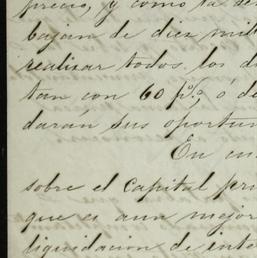 precio, y como la de
bajan de diez mil
realizar todos los d
tan con 60 p%, ó de
darán sus oportun
En cu
sobre el Capital pri
que es aun mejor
liquidacion de inte